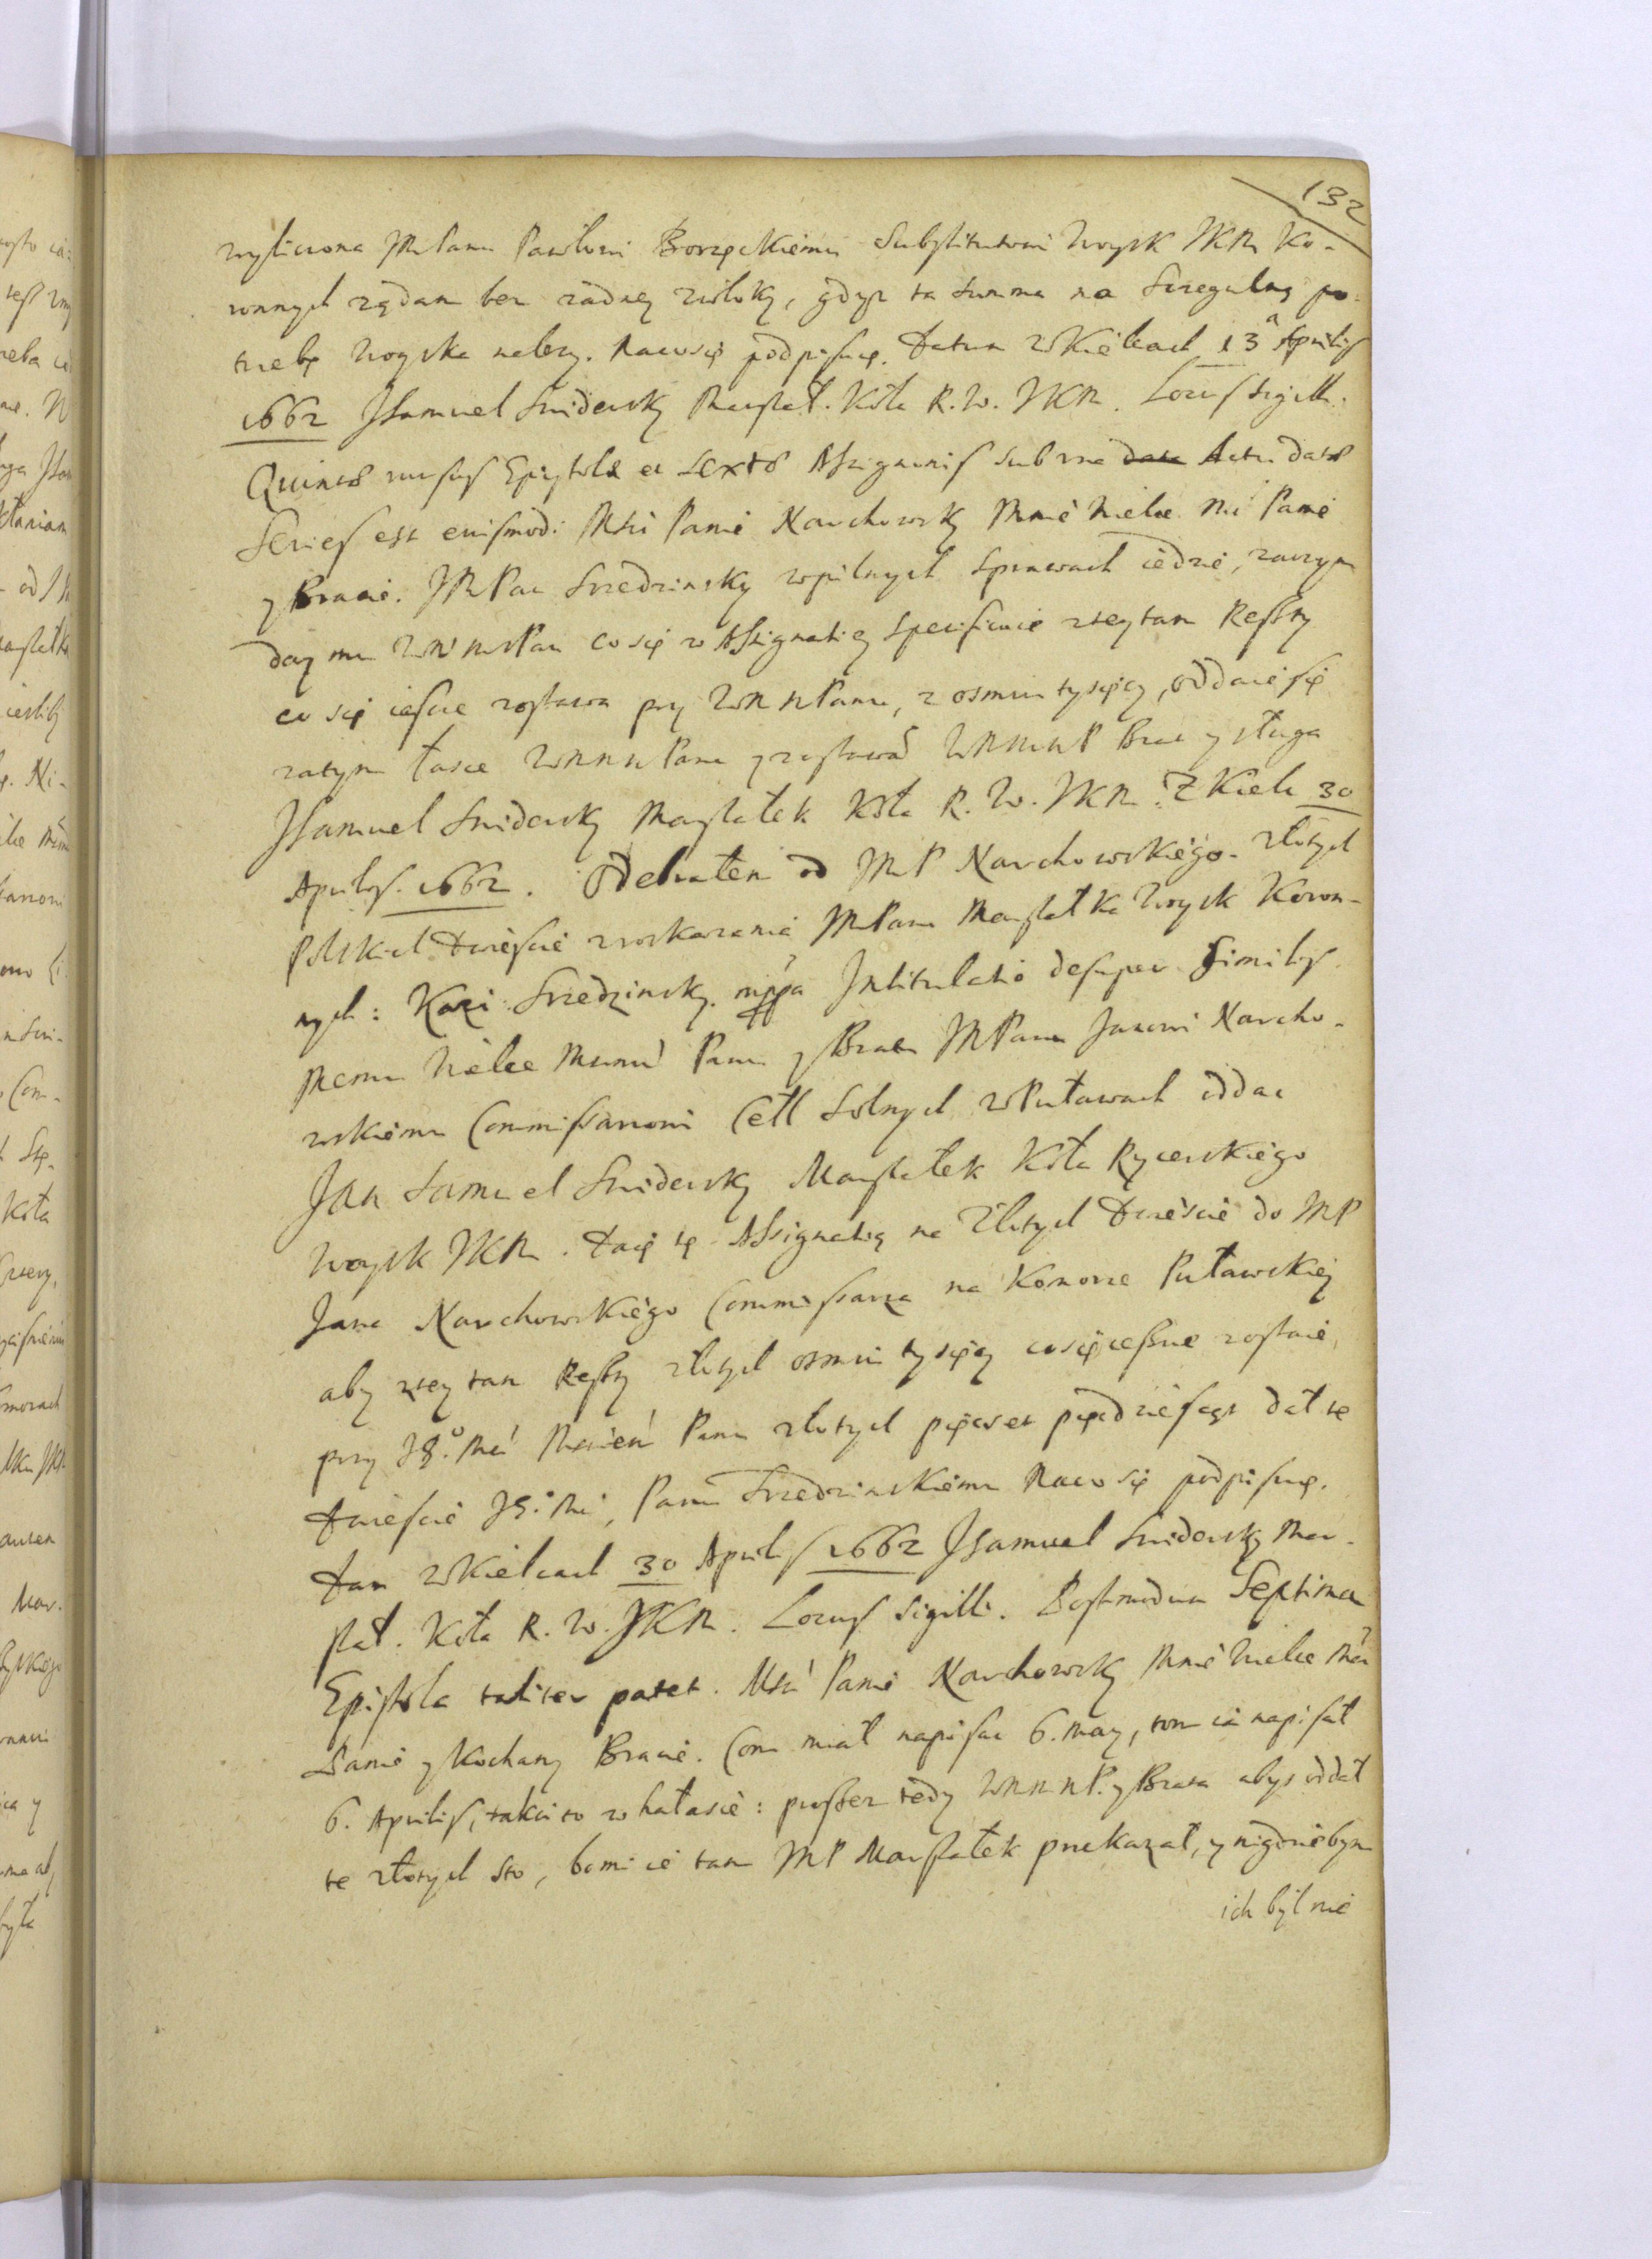 132
wyliczona JMPanu Pawłowi Borzęckiemu Substitutowi Woysk JKM Ko-
ronnych żądam bez żadney zwłoky, gdysz ta summa na szczegulną po-
trzebę Woyska należy. Na co się podpisuię. Datum w Kielcach 13 a Aprilis
1662 JSamuel Swiderský Marszał. Koła R. W. JKM. Locus sigilli.
Quintæ rursus Epistolæ et Sextæ Assignationis sub una Actu datæ
Series est eiusmodi: Mści Panie Karchowský Mnie Wielce Mci Panie
y Bracie. JMPan Srzedzinsky w pilnych sprawach iedzie, zaczym
day mu WMMPan co się w Assignatiey specificuie z tey tam Reszty
co się ieszcze zostawa przy WMMPanu, z osmiu tysięcy, oddaie się
zatym łasce WMMMPana y zostawa WMMMP Brat y sługa
JSamuel Swiderský Marszałek Koła R. W. JKM. Z Kielc 30
Aprilis. 1662. Odebrałem od JMP Karchowskiego złotych
Polskich Dwiescie z roskazania JMPana Marszałka Woysk Koron-
nych: Kazi: Srzedzinsky. mppa Intitulatio desuper similis.
Memu Wielce Memu Panu y Bratu JMPanu Janowi Karcho-
wskiemu Commissarzowi Cełł Solnych w Puławach oddac
Jan Samuel Swiderský Marszałek Koła Rycerskiego
Woysk JKM. Daię tę Assignatią na Złotych Dwiescie do JMP
Jana Karchowskiego Commissarza na Komorze Puławskiey
aby z tey tam Reszty złotych osmiu tysięcy co się ieszcze zostaie,
przy Jego Mci Panu złotych pięcset pięcdziesiąt dał te
Dwiescie Je Mci, Panu Srzedzinskiemu Na co się podpisuię.
Dan w Kielcach 30 Aprilis 1662 JSamuel Swiderský Mar-
szał. Koła R. W. JKM. Locus Sigilli. Postmodum Septima
Epistola taliter patet. Mści Panie Karchowsky Mnie Wielce Mci
Panie y Kochany Bracie. Com miał napisac 6. May, tom ia napisał
6. Aprilis, takci to w hałasie: proszę tedy WMMMP. y Brata abys oddał
te złotych sto, bomi ie tam JMP Marszałek przekazał, y nigdziebym
ich był nie